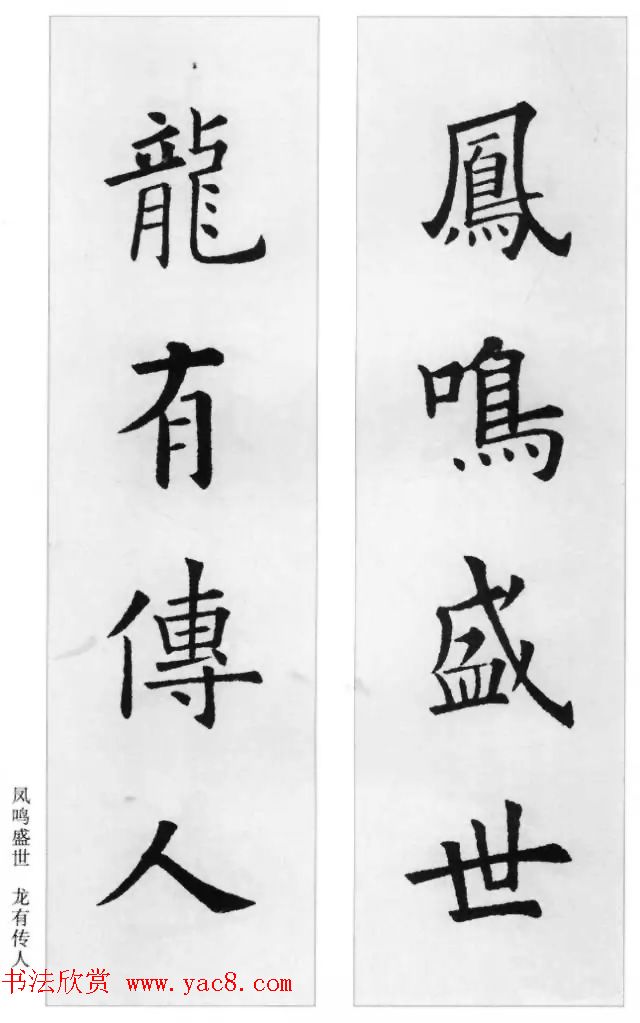 鳳鳴盛世
龍有傳人
凤鸣盛世 龙有传人
书法欣赏 www.yac8.com